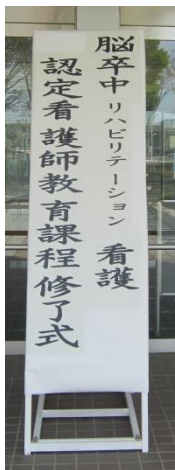 脳卒中 リハビリテーション 看護
認定看護師教育課程 修了式